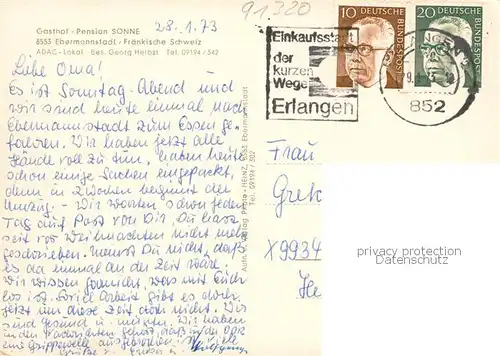 91320
28.1.73
Gasthof - Pension SONNE
8553 Ebermannstadt - Fränkische Schweiz
ADAC - Lokal Bes. Georg Herbst Tel. 09194 / 342
Liebe Oma!
Es ist Sonntag-Abend und
wir sind heute einmal nach
Ebermannstadt zum Essen ge-
fahren. Wir haben jetzt alle
Hände voll zu tun, haben heute
schon einige Sachen eingepackt,
denn in 2 Wochen beginnt der
Umzug. - Wir warten schon jeden
Tag auf Post von Dir, Du hast
seit vor Weihnachten nicht mehr
geschrieben. Meinst Du nicht, daß
es da einmal an der Zeit wäre.
Wir wissen garnicht, was mit Euch
los ist. Arbeit gibt es doch
jetzt um diese Zeit doch nicht. Wir
sind gesund u. munter. Wir haben
in den Nachrichten gehört, daß in der DDR
eine Grippewelle ausgebrochen ist. Viele
Grüße
Einkaufsstadt
der
kurzen
Wege
Erlangen
10
DEUTSCHE
BUNDESPOST
20
DEUTSCHE
BUNDESPOST
852
8553 Ebermannstadt
Tel. 09194 / 202
Frau
Gret
X9934
privacy protection
Datenschutz